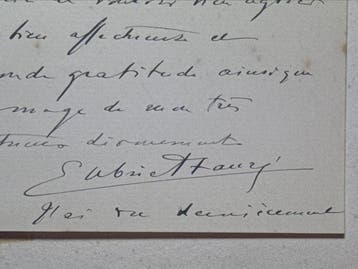 bien affectueuse et
onde gratitude ainsi que
mage de mon très
dévouement
Gabriel Fauré
J'ai vu dernièrement